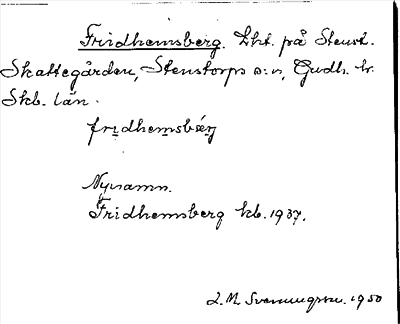 Fridhemsberg. Lht. på Stenst.
Skattegården, Stenstorps sn, Gudh. hr.
Skb. län.
fridhemsbærj
Nynamn.
Fridhemsberg kb. 1937.
L. M. Svenungsson. 1950